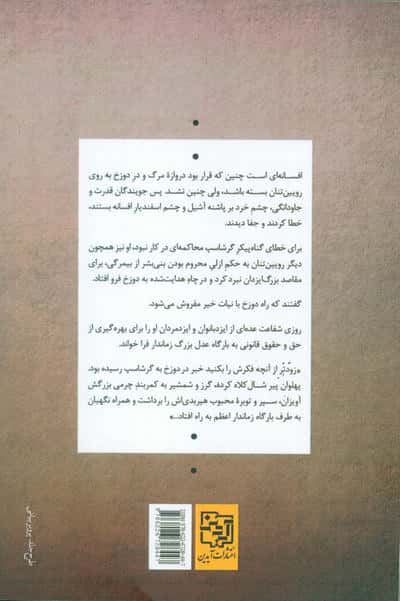 افسانه‌ای است چنین که قرار بود دروازهٔ مرگ و در دوزخ به روی
رویین‌تنان بسته باشد، ولی چنین نشد. پس جویندگان قدرت و
جاودانگی، چشم خرد بر پاشنه آشیل و چشم اسفندیار افسانه بستند،
خطا کردند و جفا دیدند.
برای خطای گناه‌پیکر گرشاسپ محاکمه‌ای در کار نبود، او نیز همچون
دیگر رویین‌تنان به حکم ازلیِ محروم بودن بنی‌بشر از بیمرگی، برای
مقاصد بزرگ‌ایزدان نبرد کرد و در چاه هدایت‌شده به دوزخ فرو افتاد.
گفتند که راه دوزخ با نیات خیر مفروش می‌شود.
روزی شفاعت عده‌ای از ایزدبانوان و ایزدمردان او را برای بهره‌گیری از
حق و حقوق قانونی به بارگاه عدل بزرگ زماندار فرا خواند.
«زودتر از آنچه فکرش را بکنید خبر در دوزخ به گرشاسپ رسیده بود.
پهلوان پیر شال‌کلاه کرد، گرز و شمشیر به کمربند چرمی بزرگش
آویزان، سپر و توبرهٔ محبوب هیربدی‌اش را برداشت و همراه نگهبان
به طرف بارگاه زماندار اعظم به راه افتاد...»
انتشارات آیدین